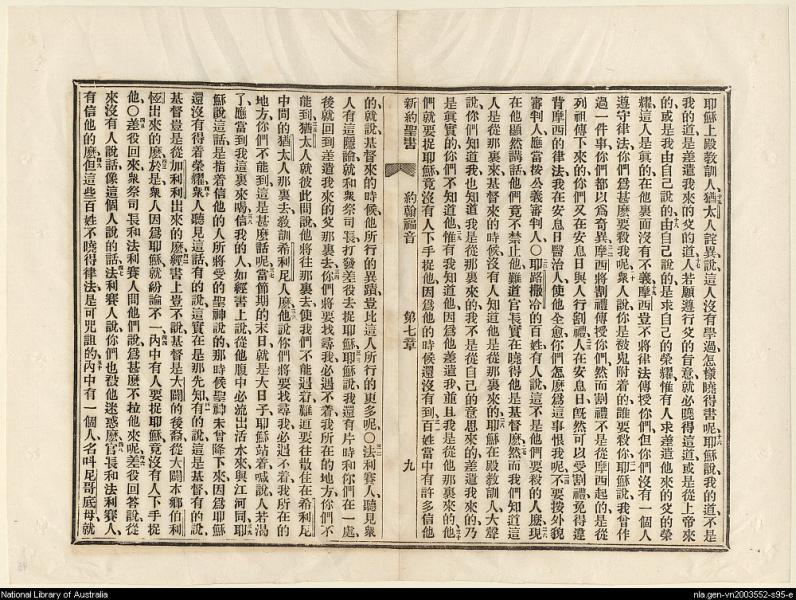 耶穌上殿敎訓人猶太人詫異說這人沒有學過怎樣曉得書呢耶穌說我的道不是
我的道是差遣我來的父的道人若願遵行父的旨意就必曉得這道或是從上帝來
的或是我由自己說的由自己說的是求自己的榮耀惟有人求差遣他來的父的榮
耀這人是眞的在他裏面沒有不義摩西豈不將律法傳授你們但你們沒有一個人
遵守律法你們爲甚麼要殺我呢衆人說你是被鬼附着的誰要殺你耶穌說我曾作
過一件事你們都以爲奇異摩西將割禮傳授你們然而割禮不是從摩西起的是從
列祖傳下來的你們又在安息日與人行割禮人在安息日旣然可以受割禮免得違
背摩西的律法我在安息日醫治人使他全愈你們怎麼爲這事恨我呢不要按外貌
審判人應當按公義審判人〇耶路撒冷的百姓有人說這不是他們要殺的人麼現
在他顯然講話他們竟不禁止他難道官長實在曉得他是基督麼然而我們知道這
人是從那裏來基督來的時候沒有人知道他是從那裏來的耶穌在殿敎訓人大聲
說你們知道我也知道我是從那裏來的我不是從自己的意思來的差遣我來的乃
是眞實的你們不知道他惟有我知道他因爲他差遣我並且我是從他那裏來的他
們就要捉耶穌竟沒有人下手捉他因爲他的時候還沒有到百姓當中有許多信他
新約聖書 約翰福音 第七章 九
的就說基督來的時候他所行的異蹟豈比這人所行的更多呢〇法利賽人聽見衆
人有這隱論就和衆祭司長打發差役去捉耶穌耶穌說我還有片時和你們在一處
後就回到差遣我來的父那裏去你們將要找尋我必遇不着我所在的地方你們不
能到猶太人就彼此問說他將往那裏去使我們不能遇着難道要往散住在希利尼
中間的猶太人那裏去敎訓希利尼人麼他說你們將要找尋我必遇不着我所在的
地方你們不能到這是甚麼話呢當節期的末日就是大日子耶穌站着喊說人若渴
了應當到我這裏來喝信我的人如經書上說從他腹中必流出活水來與江河同耶
穌說這話是指着信他的人所將受的聖神說的那時候聖神未曾降下來因爲耶穌
還沒有得着榮耀衆人聽見這話有的說這實在是那先知有的說這是基督有的說
基督豈是從加利利出來的麼經書上豈不說基督是大闢的後裔從大闢本鄉伯利
恆出來的麼於是衆人因爲耶穌就紛論不一內中有人要捉耶穌竟沒有人下手捉
他〇差役回來衆祭司長和法利賽人問他們說爲甚麼不拉他來呢差役回答說從
來沒有人說話像這個人說的話法利賽人說你們也被他迷惑麼官長和法利賽人
有信他的麼但這些百姓不曉得律法是可咒詛的內中有一個人名呌尼哥底母就
National Library of Australia
nla.gen-vn2003552-s95-e